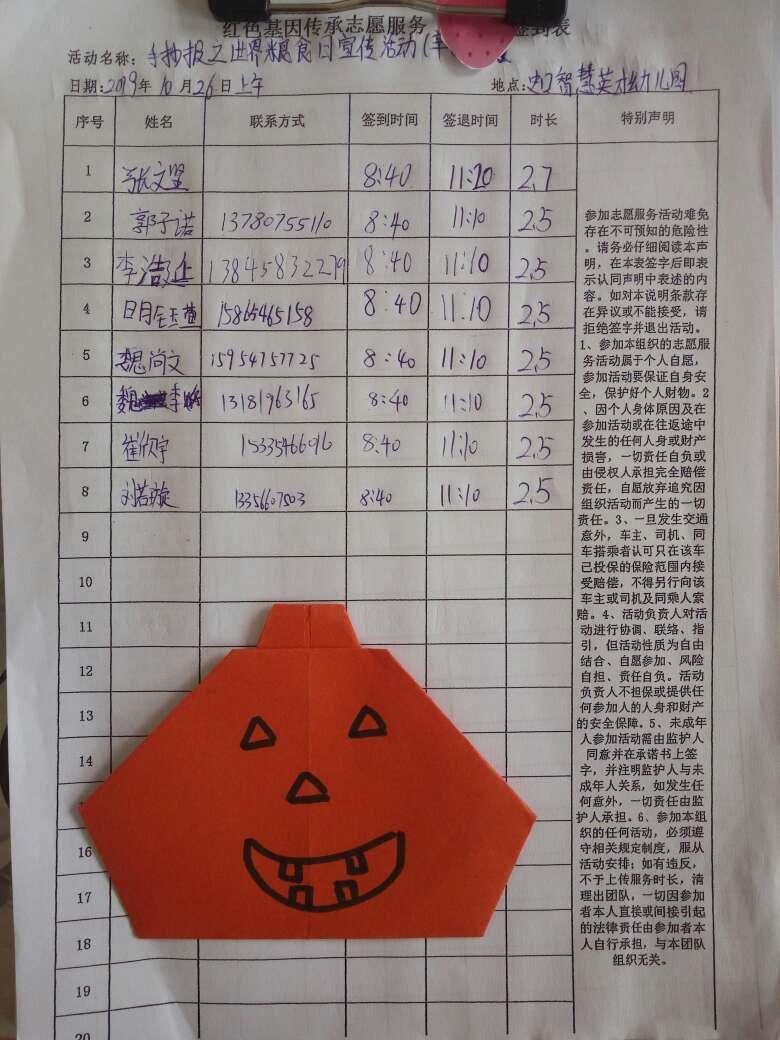 红色基因传承志愿服务 签到表
活动名称：手抄报之世界粮食日宣传活动(
日期：2019年10月26日上午 地点：智慧英才幼儿园
序号 姓名 联系方式 签到时间 签退时间 时长 特别声明
1 张文坚 8:40 11:20 2.7
2 郭子诺 13780755110 8:40 11:10 2.5
3 李浩 13845832279 8:40 11:10 2.5
4 15865465158 8:40 11:10 2.5
5 魏尚文 15954757725 8:40 11:10 2.5
6 魏李 13181963165 8:40 11:10 2.5
7 崔欣宇 15335466016 8:40 11:10 2.5
8 刘若璇 13356607503 8:40 11:10 2.5
9
10
11
12
13
14
16
17
18
19
20
参加志愿服务活动难免
存在不可预知的危险性
。请务必仔细阅读本声
明，在本表签字后即表
示认同声明中表述的内
容。如对本说明条款存
在异议或不能接受，请
拒绝签字并退出活动。
1、参加本组织的志愿服
务活动属于个人自愿，
参加活动要保证自身安
全，保护好个人财物。2
、因个人身体原因及在
参加活动或在往返途中
发生的任何人身或财产
损害，一切责任自负或
由侵权人承担完全赔偿
责任，自愿放弃追究因
组织活动而产生的一切
责任。3、一旦发生交通
意外，车主、司机、同
车搭乘者认可只在该车
已投保的保险范围内接
受赔偿，不得另行向该
车主或司机及同乘人索
赔。4、活动负责人对活
动进行协调、联络、指
引，但活动性质为自由
结合、自愿参加、风险
自担、责任自负。活动
负责人不担保或提供任
何参加人的人身和财产
的安全保障。5、未成年
人参加活动需由监护人
同意并在承诺书上签
字，并注明监护人与未
成年人关系，如发生任
何意外，一切责任由监
护人承担。6、参加本组
织的任何活动，必须遵
守相关规定制度，服从
活动安排；如有违反，
不于上传服务时长，清
理出团队，一切因参加
者本人直接或间接引起
的法律责任由参加者本
人自行承担，与本团队
组织无关。